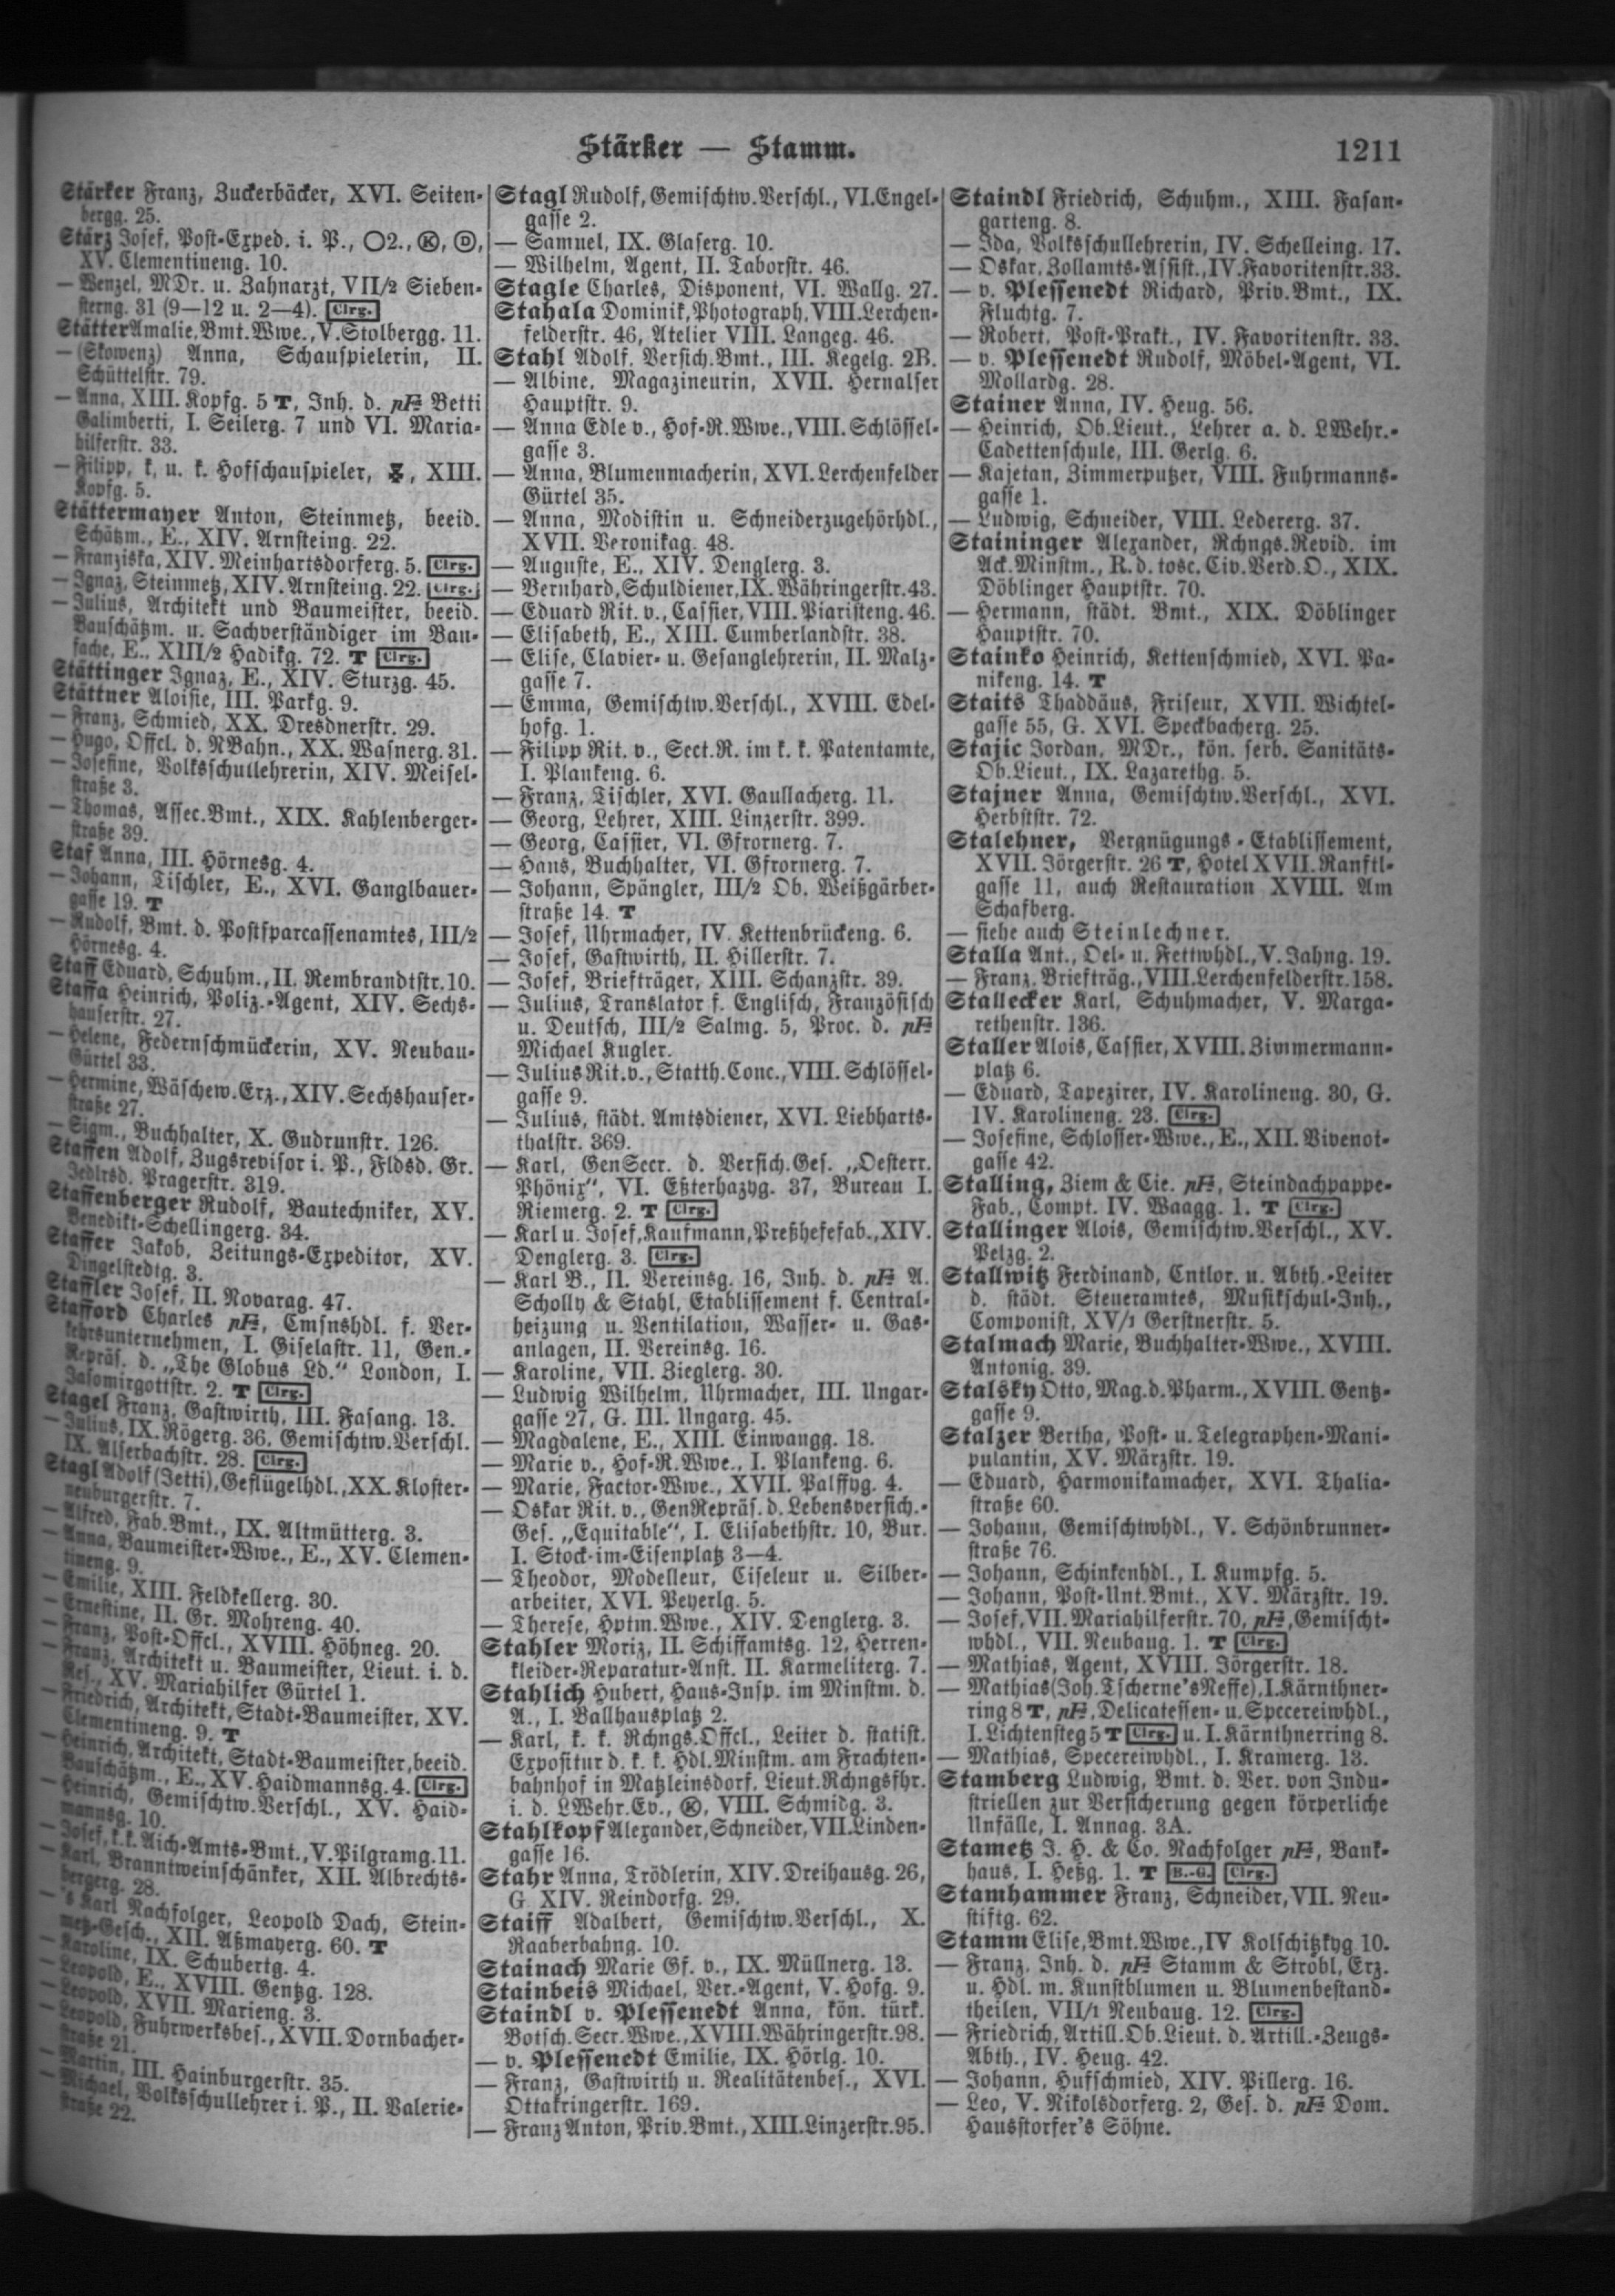 Stärker — Stamm.
1211
Stärker Franz, Zuckerbäcker, XVI. Seiten-
bergg. 25.
Stärz Josef, Post-Exped. i. P., ○2., Ⓚ, Ⓓ,
XV. Clementineng. 10.
— Wenzel, MDr. u. Zahnarzt, VII/2 Sieben-
sterng. 31 (9—12 u. 2—4). Clrg.
Stätter Amalie, Bmt.Wwe., V. Stolbergg. 11.
— (Skowenz) Anna, Schauspielerin, II.
Schüttelstr. 79.
— Anna, XIII. Kopfg. 5 T, Inh. d. pF Betti
Galimberti, I. Seilerg. 7 und VI. Maria-
hilferstr. 33.
— Filipp, k. u. k. Hofschauspieler, XIII.
Kopfg. 5.
Stättermayer Anton, Steinmetz, beeid.
Schätzm., E., XIV. Arnsteing. 22.
— Franziska, XIV. Meinhartsdorferg. 5. Clrg.
— Ignaz, Steinmetz, XIV. Arnsteing. 22. Clrg.
— Julius, Architekt und Baumeister, beeid.
Bauschätzm. u. Sachverständiger im Bau-
fache, E., XIII/2 Hadikg. 72. T Clrg.
Stättinger Ignaz, E., XIV. Sturzg. 45.
Stättner Aloisie, III. Parkg. 9.
— Franz, Schmied, XX. Dresdnerstr. 29.
— Hugo, Offcl. d. NBahn., XX. Wasnerg. 31.
— Josefine, Volksschullehrerin, XIV. Meisel-
straße 3.
— Thomas, Assec.Bmt., XIX. Kahlenberger-
straße 39.
Staf Anna, III. Hörnesg. 4.
— Johann, Tischler, E., XVI. Ganglbauer-
gasse 19. T
— Rudolf, Bmt. d. Postsparcassenamtes, III/2
Hörnesg. 4.
Staff Eduard, Schuhm., II. Rembrandtstr. 10.
Staffa Heinrich, Poliz.-Agent, XIV. Sechs-
hauserstr. 27.
— Helene, Federnschmückerin, XV. Neubau-
Gürtel 33.
— Hermine, Wäschew.Erz., XIV. Sechshauser-
straße 27.
— Sigm., Buchhalter, X. Gudrunstr. 126.
Staffen Adolf, Zugsrevisor i. P., Fldsd. Gr.
Jedlrsd. Pragerstr. 319.
Staffenberger Rudolf, Bautechniker, XV.
Benedikt-Schellingerg. 34.
Staffer Jakob, Zeitungs-Expeditor, XV.
Dingelstedtg. 3.
Staffler Josef, II. Novarag. 47.
Stafford Charles pF, Cmsnshdl. f. Ver-
kehrsunternehmen, I. Giselastr. 11, Gen.-
Repräs. d. „The Globus Ld.“ London, I.
Jasomirgottstr. 2. T Clrg.
Stagel Franz, Gastwirth, III. Fasang. 13.
— Julius, IX. Rögerg. 36, Gemischtw.Verschl.
IX. Alserbachstr. 28. Clrg.
Stagl Adolf (Jetti), Geflügelhdl., XX. Kloster-
neuburgerstr. 7.
— Alfred, Fab.Bmt., IX. Altmütterg. 3.
— Anna, Baumeister-Wwe., E., XV. Clemen-
tineng. 9.
— Emilie, XIII. Feldkellerg. 30.
— Ernestine, II. Gr. Mohreng. 40.
— Franz, Post-Offcl., XVIII. Höhneg. 20.
— Franz, Architekt u. Baumeister, Lieut. i. d.
Res., XV. Mariahilfer Gürtel 1.
— Friedrich, Architekt, Stadt-Baumeister, XV.
Clementineng. 9. T
— Heinrich, Architekt, Stadt-Baumeister, beeid.
Bauschätzm., E., XV. Haidmannsg. 4. Clrg.
— Heinrich, Gemischtw.Verschl., XV. Haid-
mannsg. 10.
— Josef, k.k. Aich-Amts-Bmt., V. Pilgramg. 11.
— Karl, Branntweinschänker, XII. Albrechts-
bergerg. 28.
— 's Karl Nachfolger, Leopold Dach, Stein-
metz-Gesch., XII. Aßmayerg. 60. T
— Karoline, IX. Schubertg. 4.
— Leopold, E., XVIII. Gentzg. 128.
— Leopold, XVII. Marieng. 3.
— Leopold, Fuhrwerksbes., XVII. Dornbacher-
straße 21.
— Martin, III. Hainburgerstr. 35.
— Michael, Volksschullehrer i. P., II. Valerie-
straße 22.
Stagl Rudolf, Gemischtw.Verschl., VI. Engel-
gasse 2.
— Samuel, IX. Glaserg. 10.
— Wilhelm, Agent, II. Taborstr. 46.
Stagle Charles, Disponent, VI. Wallg. 27.
Stahala Dominik, Photograph, VIII. Lerchen-
felderstr. 46, Atelier VIII. Langeg. 46.
Stahl Adolf, Versich.Bmt., III. Kegelg. 2B.
— Albine, Magazineurin, XVII. Hernalser
Hauptstr. 9.
— Anna Edle v., Hof-R.Wwe., VIII. Schlössel-
gasse 3.
— Anna, Blumenmacherin, XVI. Lerchenfelder
Gürtel 35.
— Anna, Modistin u. Schneiderzugehörhdl.,
XVII. Veronikag. 48.
— Auguste, E., XIV. Denglerg. 3.
— Bernhard, Schuldiener, IX. Währingerstr. 43.
— Eduard Rit. v., Cassier, VIII. Piaristeng. 46.
— Elisabeth, E., XIII. Cumberlandstr. 38.
— Elise, Clavier- u. Gesanglehrerin, II. Malz-
gasse 7.
— Emma, Gemischtw.Verschl., XVIII. Edel-
hofg. 1.
— Filipp Rit. v., Sect.R. im k. k. Patentamte,
I. Plankeng. 6.
— Franz, Tischler, XVI. Gaullacherg. 11.
— Georg, Lehrer, XIII. Linzerstr. 399.
— Georg, Cassier, VI. Gfrornerg. 7.
— Hans, Buchhalter, VI. Gfrornerg. 7.
— Johann, Spängler, III/2 Ob. Weißgärber-
straße 14. T
— Josef, Uhrmacher, IV. Kettenbrückeng. 6.
— Josef, Gastwirth, II. Hillerstr. 7.
— Josef, Briefträger, XIII. Schanzstr. 39.
— Julius, Translator f. Englisch, Französisch
u. Deutsch, III/2 Salmg. 5, Proc. d. pF
Michael Kugler.
— Julius Rit. v., Statth.Conc., VIII. Schlössel-
gasse 9.
— Julius, städt. Amtsdiener, XVI. Liebharts-
thalstr. 369.
— Karl, GenSecr. d. Versich.Ges. „Oesterr.
Phönix“, VI. Eßterhazyg. 37, Bureau I.
Riemerg. 2. T Clrg.
— Karl u. Josef, Kaufmann, Preßhefefab., XIV.
Denglerg. 3. Clrg.
— Karl B., II. Vereinsg. 16, Inh. d. pF A.
Scholly & Stahl, Etablissement f. Central-
heizung u. Ventilation, Wasser- u. Gas-
anlagen, II. Vereinsg. 16.
— Karoline, VII. Zieglerg. 30.
— Ludwig Wilhelm, Uhrmacher, III. Ungar-
gasse 27, G. III. Ungarg. 45.
— Magdalene, E., XIII. Einwangg. 18.
— Marie v., Hof-R.Wwe., I. Plankeng. 6.
— Marie, Factor-Wwe., XVII. Palffyg. 4.
— Oskar Rit. v., GenRepräs. d. Lebensversich.-
Ges. „Equitable“, I. Elisabethstr. 10, Bur.
I. Stock-im-Eisenplatz 3—4.
— Theodor, Modelleur, Ciseleur u. Silber-
arbeiter, XVI. Peyerlg. 5.
— Therese, Hptm.Wwe., XIV. Denglerg. 3.
Stahler Moriz, II. Schiffamtsg. 12, Herren-
kleider-Reparatur-Anst. II. Karmeliterg. 7.
Stahlich Hubert, Haus-Insp. im Minstm. d.
A., I. Ballhausplatz 2.
— Karl, k. k. Rchngs.Offcl., Leiter d. statist.
Expositur d. k. k. Hdl.Minstm. am Frachten-
bahnhof in Matzleinsdorf, Lieut.Rchngsfhr.
i. d. LWehr.Ev., Ⓚ, VIII. Schmidg. 3.
Stahlkopf Alexander, Schneider, VII. Linden-
gasse 16.
Stahr Anna, Trödlerin, XIV. Dreihausg. 26,
G. XIV. Reindorfg. 29.
Staiff Adalbert, Gemischtw.Verschl., X.
Raaberbahng. 10.
Stainach Marie Gf. v., IX. Müllnerg. 13.
Stainbeis Michael, Ver.-Agent, V. Hofg. 9.
Staindl v. Plessenedt Anna, kön. türk.
Botsch.Secr.Wwe., XVIII. Währingerstr. 98.
— v. Plessenedt Emilie, IX. Hörlg. 10.
— Franz, Gastwirth u. Realitätenbes., XVI.
Ottakringerstr. 169.
— Franz Anton, Priv.Bmt., XIII. Linzerstr. 95.
Staindl Friedrich, Schuhm., XIII. Fasan-
garteng. 8.
— Ida, Volksschullehrerin, IV. Schelleing. 17.
— Oskar, Zollamts-Assist., IV. Favoritenstr. 33.
— v. Plessenedt Richard, Priv.Bmt., IX.
Fluchtg. 7.
— Robert, Post-Prakt., IV. Favoritenstr. 33.
— v. Plessenedt Rudolf, Möbel-Agent, VI.
Mollardg. 28.
Stainer Anna, IV. Heug. 56.
— Heinrich, Ob.Lieut., Lehrer a. d. LWehr.-
Cadettenschule, III. Gerlg. 6.
— Kajetan, Zimmerputzer, VIII. Fuhrmanns-
gasse 1.
— Ludwig, Schneider, VIII. Ledererg. 37.
Staininger Alexander, Rchngs.Revid. im
Ack.Minstm., R. d. tosc. Civ.Verd.O., XIX.
Döblinger Hauptstr. 70.
— Hermann, städt. Bmt., XIX. Döblinger
Hauptstr. 70.
Stainko Heinrich, Kettenschmied, XVI. Pa-
nikeng. 14. T
Staits Thaddäus, Friseur, XVII. Wichtel-
gasse 55, G. XVI. Speckbacherg. 25.
Stajic Jordan, MDr., kön. serb. Sanitäts-
Ob.Lieut., IX. Lazarethg. 5.
Stajner Anna, Gemischtw.Verschl., XVI.
Herbststr. 72.
Stalehner, Vergnügungs-Etablissement,
XVII. Jörgerstr. 26 T, Hotel XVII. Ranftl-
gasse 11, auch Restauration XVIII. Am
Schafberg.
— siehe auch Steinlechner.
Stalla Ant., Oel- u. Fettwhdl., V. Jahng. 19.
— Franz, Briefträg., VIII. Lerchenfelderstr. 158.
Stallecker Karl, Schuhmacher, V. Marga-
rethenstr. 136.
Staller Alois, Cassier, XVIII. Zimmermann-
platz 6.
— Eduard, Tapezirer, IV. Karolineng. 30, G.
IV. Karolineng. 23. Clrg.
— Josefine, Schlosser-Wwe., E., XII. Vivenot-
gasse 42.
Stalling, Ziem & Cie. pF, Steindachpappe-
Fab., Compt. IV. Waagg. 1. T Clrg.
Stallinger Alois, Gemischtw.Verschl., XV.
Pelzg. 2.
Stallwitz Ferdinand, Cntlor. u. Abth.-Leiter
d. städt. Steueramtes, Musikschul-Inh.,
Componist, XV/1 Gerstnerstr. 5.
Stalmach Marie, Buchhalter-Wwe., XVIII.
Antonig. 39.
Stalsky Otto, Mag.d.Pharm., XVIII. Gentz-
gasse 9.
Stalzer Bertha, Post- u. Telegraphen-Mani-
pulantin, XV. Märzstr. 19.
— Eduard, Harmonikamacher, XVI. Thalia-
straße 60.
— Johann, Gemischtwhdl., V. Schönbrunner-
straße 76.
— Johann, Schinkenhdl., I. Kumpfg. 5.
— Johann, Post-Unt.Bmt., XV. Märzstr. 19.
— Josef, VII. Mariahilferstr. 70, pF, Gemischt-
whdl., VII. Neubaug. 1. T Clrg.
— Mathias, Agent, XVIII. Jörgerstr. 18.
— Mathias (Joh. Tscherne's Neffe), I. Kärnthner-
ring 8 T, pF, Delicatessen- u. Specereiwhdl.,
I. Lichtensteg 5 T Clrg. u. I. Kärnthnerring 8.
— Mathias, Specereiwhdl., I. Kramerg. 13.
Stamberg Ludwig, Bmt. d. Ver. von Indu-
striellen zur Versicherung gegen körperliche
Unfälle, I. Annag. 3A.
Stametz J. H. & Co. Nachfolger pF, Bank-
haus, I. Heßg. 1. T B.-G. Clrg.
Stamhammer Franz, Schneider, VII. Neu-
stiftg. 62.
Stamm Elise, Bmt.Wwe., IV Kolschitzkyg 10.
— Franz, Inh. d. pF Stamm & Strobl, Erz.
u. Hdl. m. Kunstblumen u. Blumenbestand-
theilen, VII/1 Neubaug. 12. Clrg.
— Friedrich, Artill.Ob.Lieut. d. Artill.-Zeugs-
Abth., IV. Heug. 42.
— Johann, Hufschmied, XIV. Pillerg. 16.
— Leo, V. Nikolsdorferg. 2, Ges. d. pF Dom.
Hausstorfer's Söhne.